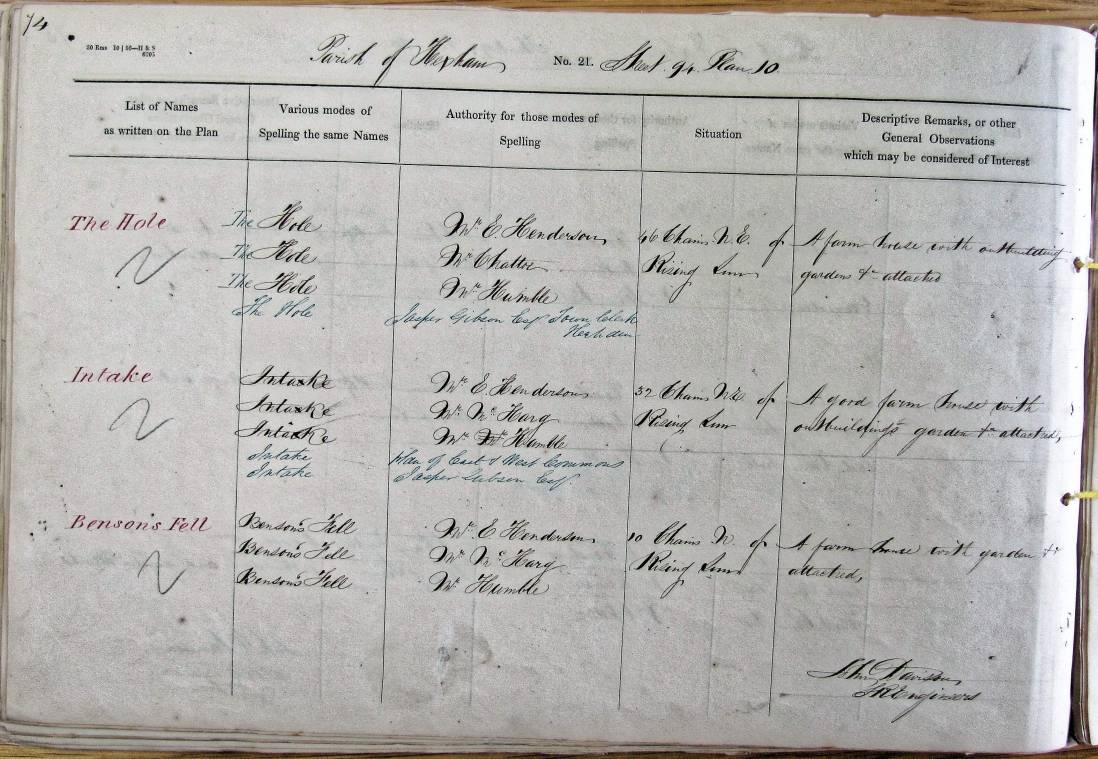 74
20 Rms 10 | 56—H & S
6205
Parish of Hexham No. 21. Sheet 94 Plan 10
List of Names
as written on the Plan
Various modes of
Spelling the same Names
Authority for those modes of
Spelling
Situation
Descriptive Remarks, or other
General Observations
which may be considered of Interest
The Hole
The Hole
The Hole
The Hole
The Hole
Mr. E. Henderson
Mr Chatto
Mr Humble
Jasper Gibson Esq Town Clerk
46 Chains N.E. of
Rising Sun
A farm house with outbuilding
gardens &c attached
Intake
Intacke
Intacke
Intacke
Intake
Intake
Mr. E. Henderson
Mr. Mc Harg
Mr Humble
Plan of East & West Commons
Jasper Gibson Esq.
32 Chains of
Rising Sun
A good farm house with
outbuildings garden &c attached,
Benson's Fell
Benson's Fell
Benson's Fell
Benson's Fell
Mr. E Henderson
Mr. Mc Harg
Mr Humble
10 Chains N. of
Rising Sun
A farm house with garden &c
attached,
John Davison
R Engineers